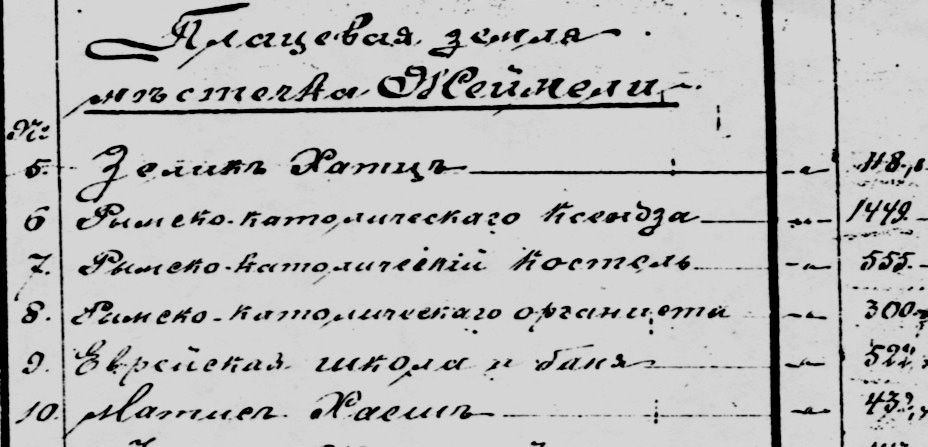 Плацевая земля
мѣстечка Жеймели.
№
5. Зеликъ Хатцъ 118
6 Римско-католическаго ксендза 1449
7. Римско-католическiй костелъ 555
8. Римско-католическаго органиста 300
9. Еврейская школа и баня 522
10. Матисъ 432